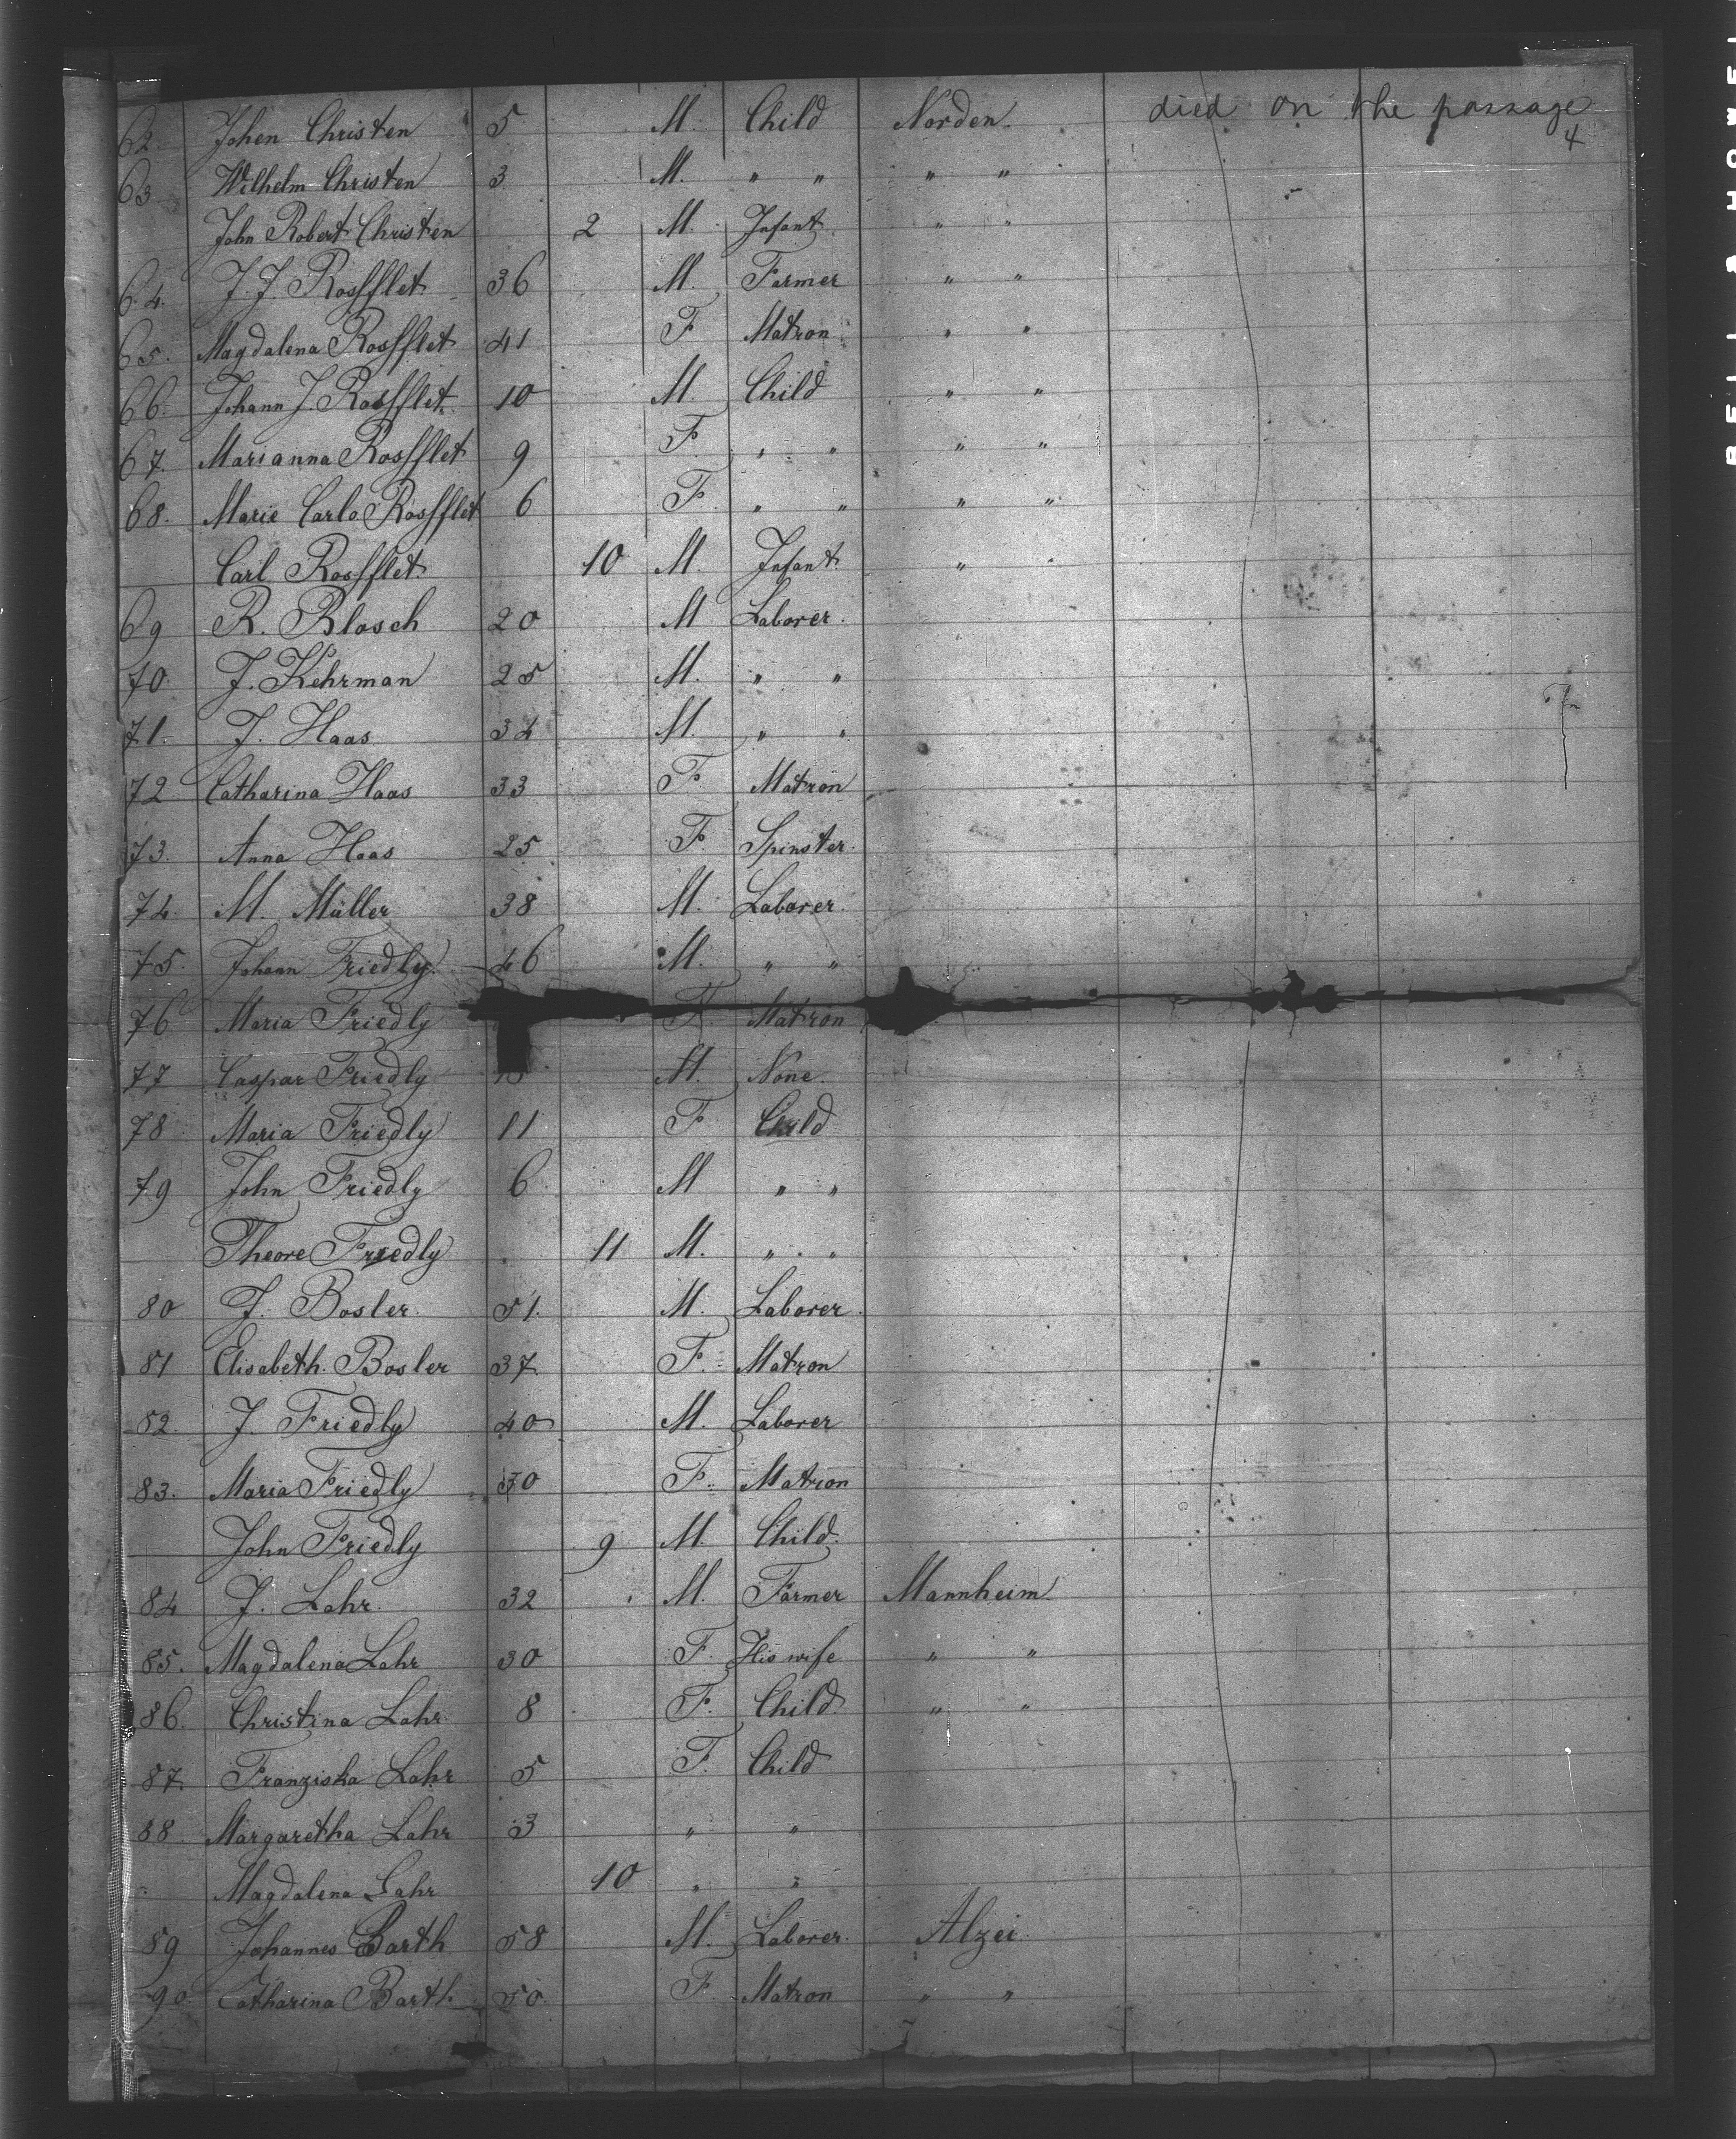 62. Johen Christen 5 M. Child Norden. died on the passage
4
63 Wilhelm Christen 3 M. " " " "
John Robert Christen 2 M. Infant " "
64. J. J. Rossfflet 36 M. Farmer " "
65. Magdalena Rossfflet 41 F Matron " "
66. Johann J. Rossfflet 10 M. Child " "
67. Marianna Rossfflet 9 F. " " " "
68. Marie Carlo Rossfflet 6 F. " " " "
Carl Rossfflet 10 M. Infant " "
69 R. Blosch 20 M Laborer.
70. J. Kehrman 25 M. " "
71. J. Haas 34 M. " "
72 Catharina Haas 33 F Matron
73. Anna Haas 25 F. Spinster.
74. M. Müller 38 M. Laborer
75. Johann Friedly. 46 M. " "
76 Maria Friedly F. Matron
77 Caspar Friedly M. None.
78 Maria Friedly 11 F Child
79 John Friedly 6 M " "
Theore Friedly 11 M. " "
80 J. Bosler. 51. M. Laborer
81 Elisabeth. Bosler 37 F. Matron
82. J. Friedly 40 M. Laborer
83. Maria Friedly 30 F. Matron
John Friedly 9 M. Child.
84 J. Lahr. 32 M. Farmer Mannheim.
85. Magdalena Lahr 30 F. His wife " "
86. Christina Lahr. 8 F. Child " "
87. Franziska Lahr 5 F. Child
88 Margaretha Lahr 3 " "
Magdalena Lahr 10 " "
89 Johannes Barth 58 M. Laborer. Alzei
90 Catharina Barth 50. F. Matron " "